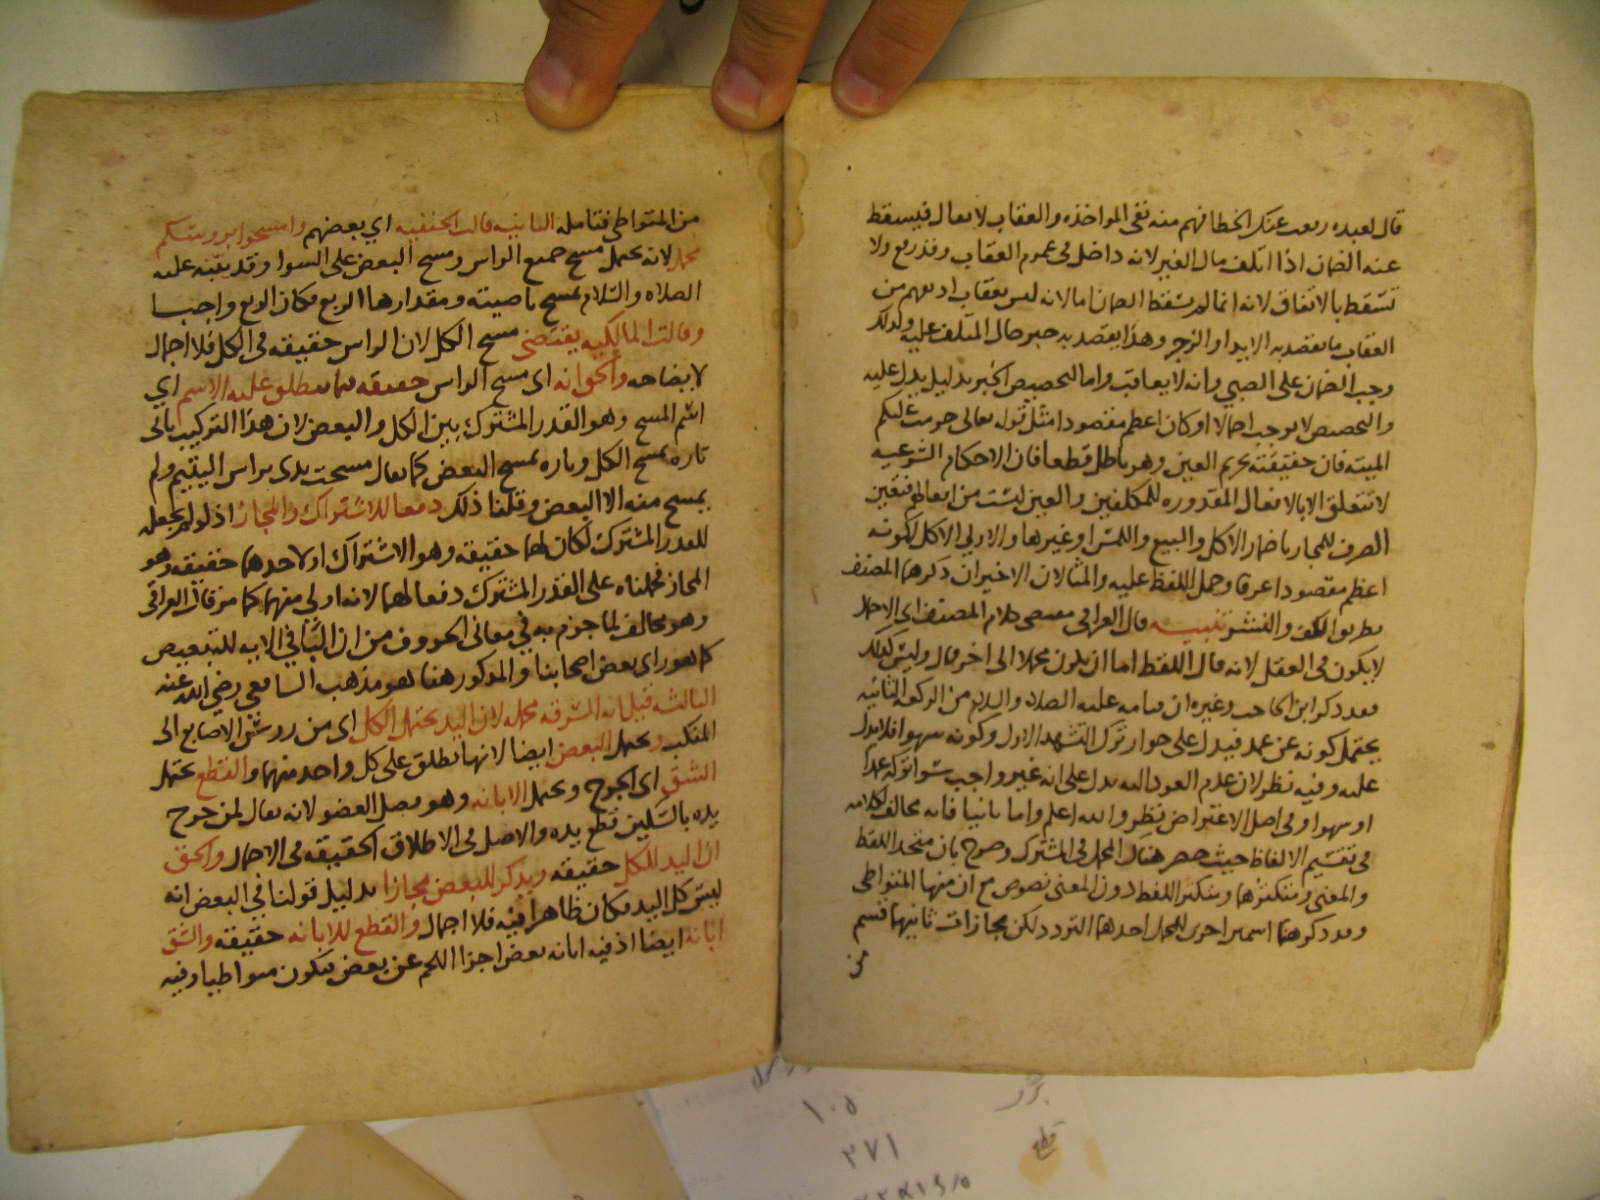 قال لعبده رفعت عنك الخطا فهم منه نفى المواخذه والعقاب لا يقال فيسقط
عنه الضمان اذا اتلف مال الغير لانه داخل فى عموم العقاب وقد رفع ولا
تسقط بالاتفاق لانه انما لم يسقط الضمان اما لانه ليس بعقاب اذ يفهم من
العقاب ما يقصد به الايذا والزجر وهذا يقصد به جبر حال المتلف عليه ولذلك
وجب الضمان على الصبي وانه لا يعاقب واما لتخصيص الخبر بدليل يدل عليه
والتخصيص لا يوجب اجمالا او كان اعظم مقصودا مثل قوله تعالى حرمت عليكم
الميته فان حقيقته تحريم العين وهو باطل قطعا فان الاحكام الشرعيه
لا تتعلق الا بالافعال المقدوره للمكلفين والعين ليست من افعالهم فتعين
الصرف للمجاز باضمار الاكل والبيع واللمس او غيرها والاولى الاكل لكونه
اعظم مقصودا عرفا وحمل اللفظ عليه والمثالان الاخيران ذكرهما المصنف
بطريق اللف والنشر تنبيه قال العراقى مقتضى كلام المصنف ان الاجمال
لا يكون فى العقل لانه قال اللفظ اما ان يكون مجملا الى اخر ما قال وليس كذلك
فقد ذكر ابن الحاجب وغيره ان قيامه عليه الصلاه والسلام من الركعه الثانيه
يحتمل كونه عن عمد فيدل على جواز ترك التشهد الاول وكونه سهوا فلا يدل
عليه وفيه نظر لان عدم العود اليه يدل على انه غير واجب سوا تركه عمدا
او سهوا وفى اصل الاعتراض نظر والله اعلم واما ثانيا فانه مخالف لكلامه
فى تقسيم الالفاظ حيث حصر هناك المجمل فى المشترك وصرح بان متحد اللفظ
والمعنى ومتكثرهما ومتكثر اللفظ دون المعنى نصوص مع ان منها المتواطى
وقد ذكر هنا قسمين اخرين للمجمل احدهما التردد لكن مجازات ثانيهما قسم
من
من المتواطى فتامله الثانيه قالت الحنفيه اي بعضهم وامسحوا بروسكم
مجمل لانه يحتمل مسح جميع الراس ومسح البعض على السوا وقد بينه عليه
الصلاه والسلام بمسح ناصيته ومقدارها الربع فكان الربع واجبا
وقالت المالكيه يقتضى مسح الكل لان الراس حقيقه فى الكل فلا اجمال
لايضاحه والحق انه اى مسح الراس حقيقه فيما ينطلق عليه الاسم اي
اسم المسح وهو القدر المشترك بين الكل والبعض لان هذا التركيب ياتى
تاره بمسح الكل وتاره بمسح البعض كما يقال مسحت يدى براس اليتيم ولم
يمسح منه الا البعض وقلنا ذلك دفعا للاشتراك والمجاز اذ لو لم يجعل
للقدر المشترك لكان لهما حقيقه وهو الاشتراك او لاحدهما حقيقه وهو
المجاز فحملناه على القدر المشترك دفعا لهما لانه اولى منهما كما مر قال العراقى
وهو مخالف لما جزم به في معانى الحروف من ان البا فى الايه للتبعيض
كما هو راى بعض اصحابنا والمذكور هنا هو مذهب الشافعى رضي الله عنه
الثالثه قيل ايه السرقه مجمله لان اليد يحتمل الكل اى من روس الاصابع الى
المنكب ويحتمل البعض ايضا لانها تطلق على كل واحد منهما والقطع يحتمل
الشق اى الجرح ويحتمل الابانه وهو فصل العضو لانه يقال لمن جرح
يده بالسكين قطع يده والاصل فى الاطلاق الحقيقه فى الاجمال والحق
ان اليد للكل حقيقه ويذكر للبعض مجازا بدليل قولنا في البعض انه
ليس كل اليد فكان ظاهرا فيه فلا اجمال والقطع للابانه حقيقه والشق
ابانه ايضا اذ فيه ابانه بعض اجزا اللحم عن بعض فيكون متواطيا وفيه
١٠٥
٢٧١
قطع